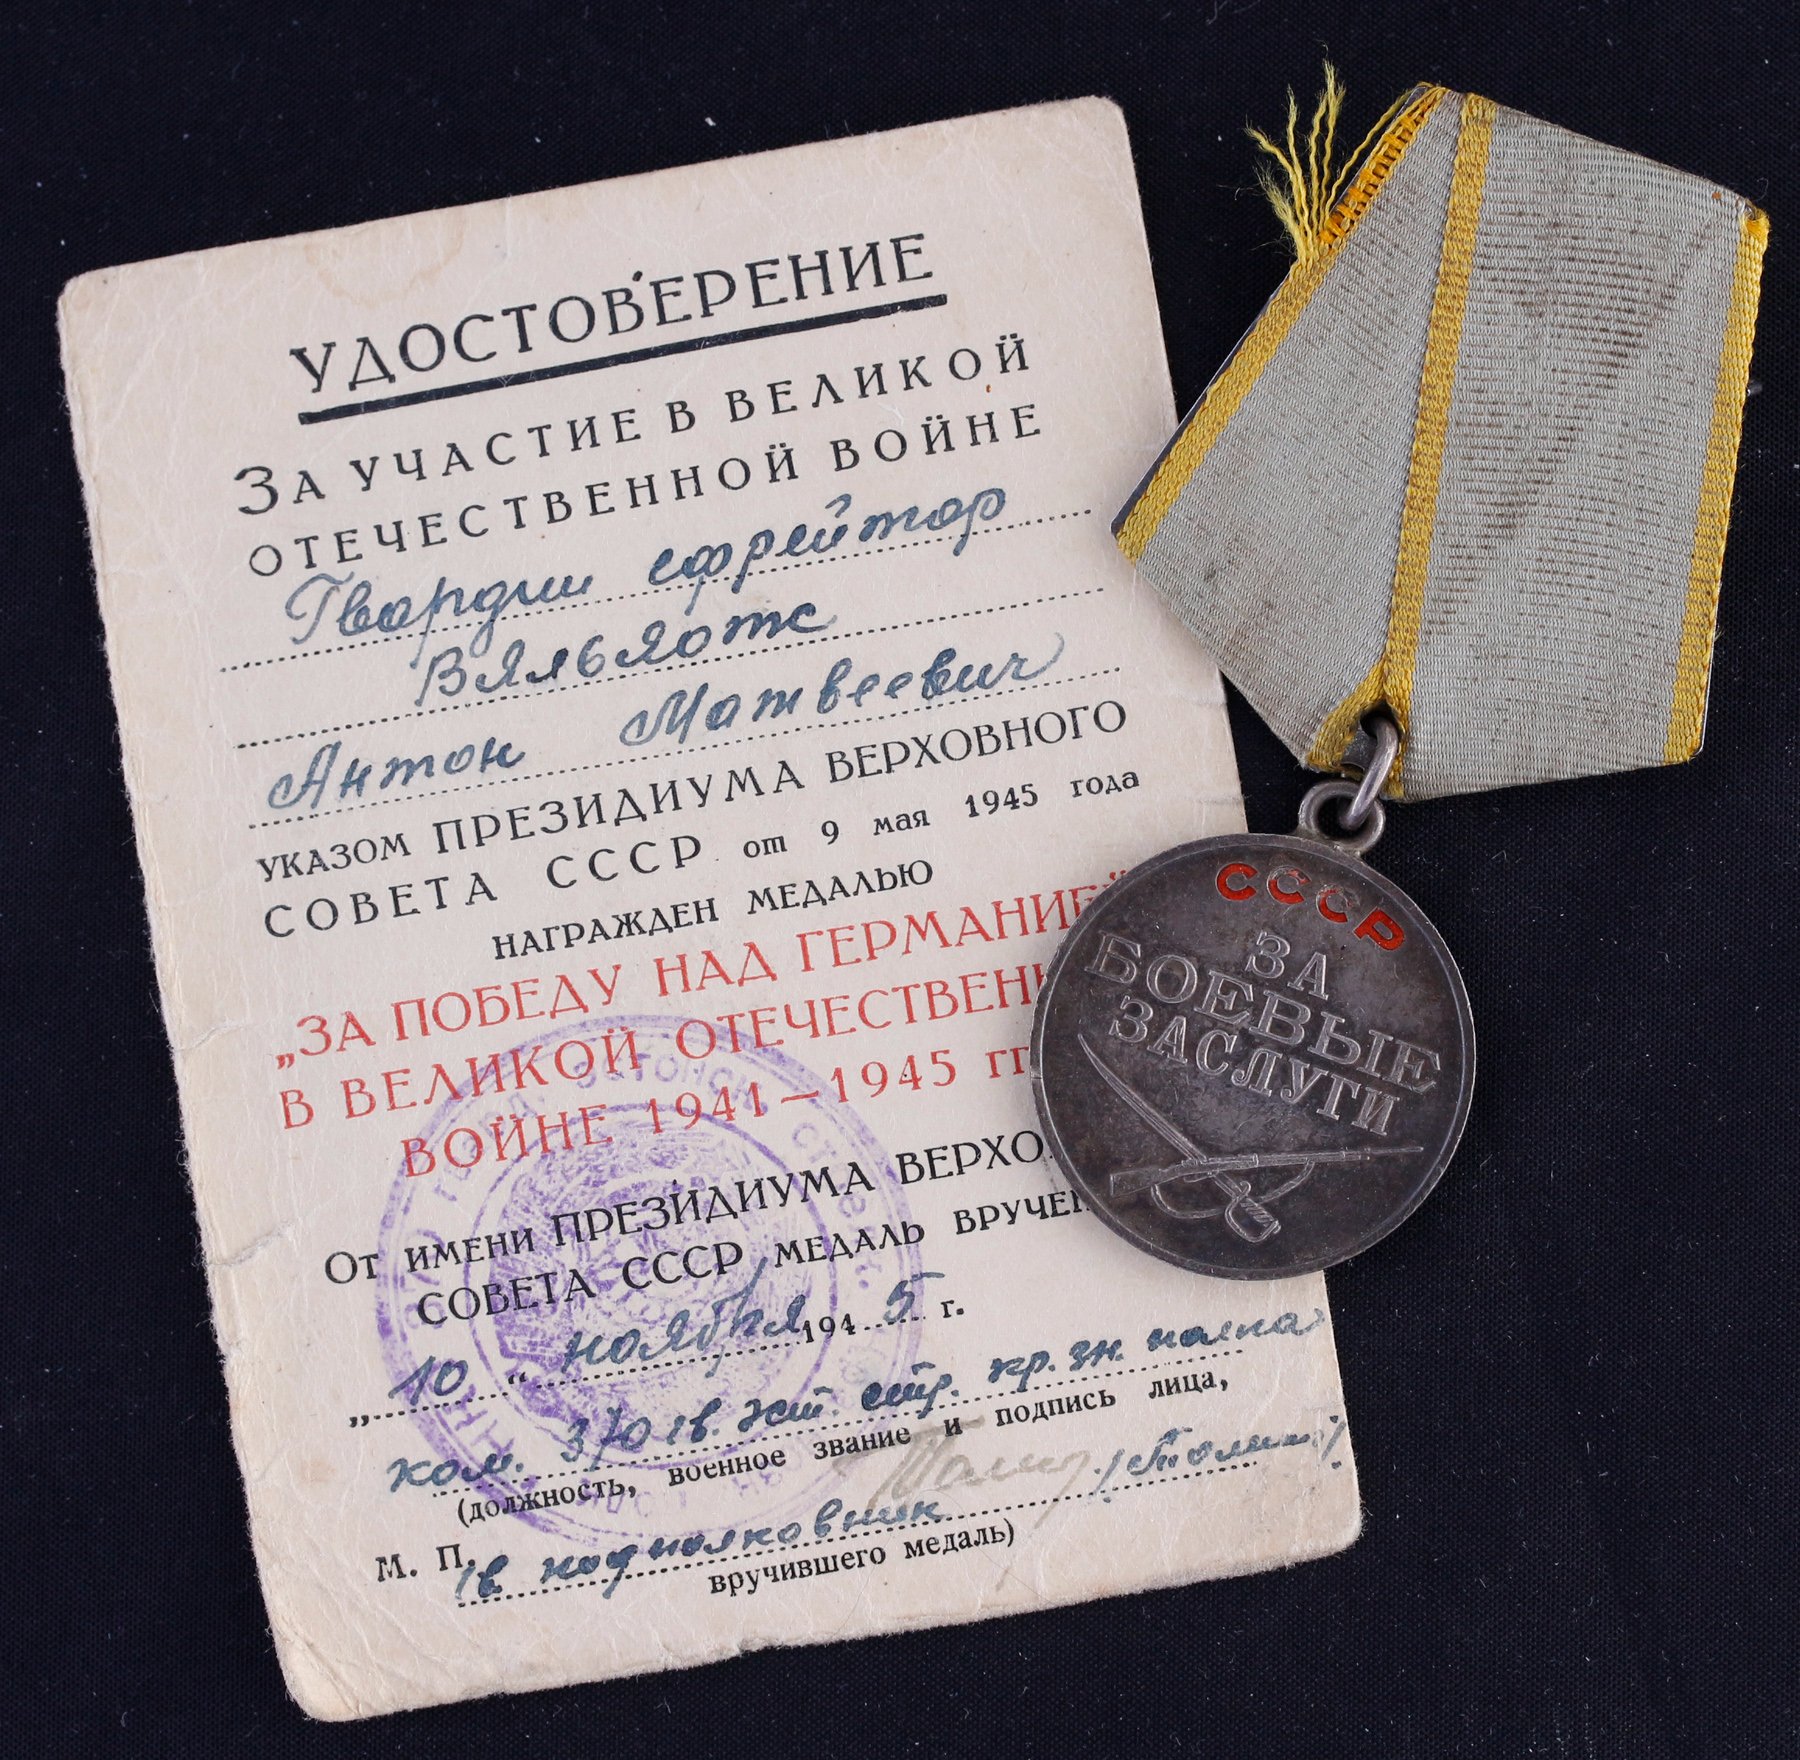 УДОСТОВЕРЕНИЕ
ЗА УЧАСТИЕ В ВЕЛИКОЙ
ОТЕЧЕСТВЕННОЙ ВОЙНЕ
Гвардии ефрейтор
Вяльяотс
Антон Матвеевич
УКАЗОМ ПРЕЗИДИУМА ВЕРХОВНОГО
СОВЕТА СССР от 9 мая 1945 года
НАГРАЖДЕН МЕДАЛЬЮ
„ЗА ПОБЕДУ НАД ГЕРМАНИЕЙ
В ВЕЛИКОЙ ОТЕЧЕСТВЕНН
ВОЙНЕ 1941—1945 гг
ОТ ИМЕНИ ПРЕЗИДИУМА ВЕРХО
СОВЕТА СССР МЕДАЛЬ ВРУЧЕН
„10“ ноября 1945 г.
ком. 370 гв. эст. стр. кр. зн. полка
(должность, военное звание и подпись лица,
М. П. гв. подполковник
вручившего медаль)
СССР
ЗА
БОЕВЫЕ
ЗАСЛУГИ